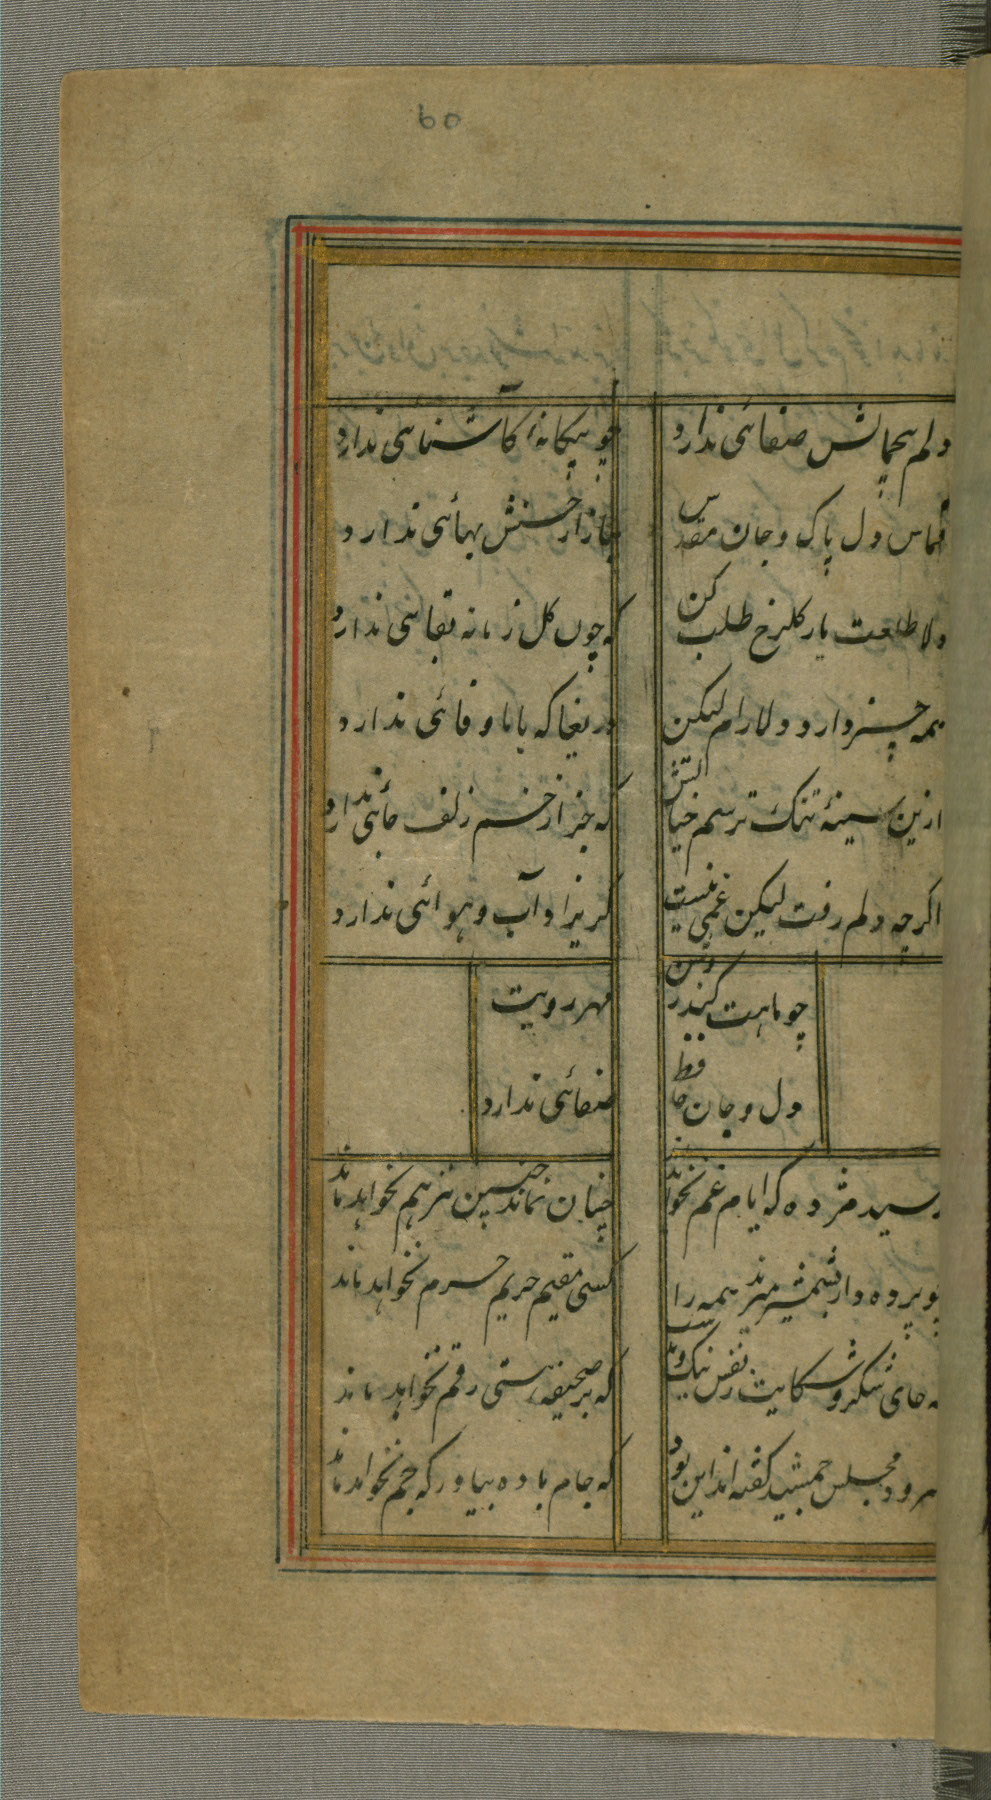 60
دلم بیجمالش صفائی ندارد چو بیگانهٔ کآشنائی ندارد
قماش دل پاک و جان مقدس ببازار حسنش بهائی ندارد
دلا طلعت یار گلرخ طلب کن که چون گل زمانه بقائی ندارد
همه چیز دارد دلارام لیکن دریغا که باما وفائی ندارد
ازین سینهٔ تنک ترسم خیالش که جز از خم زلف جائی ندارد
اگرچه دلم رفت لیکن غمی نیست گریز او آب و هوائی ندارد
چو ماهت مهر رویت
دل و جان حافظ صفائی ندارد
رسید مژده که ایام غم نخواهد ماند چنان نماند چنین نیز هم نخواهد ماند
چو پرده دار بشمشیر میزند همه را کسی مقیم حریم حرم نخواهد ماند
چه جای شکر و شکایت ز نقش نیک و بد که بر صحیفه هستی رقم نخواهد ماند
سرود مجلس جمشید گفته اند این بود که جام باده بیاور که جم نخواهد ماند